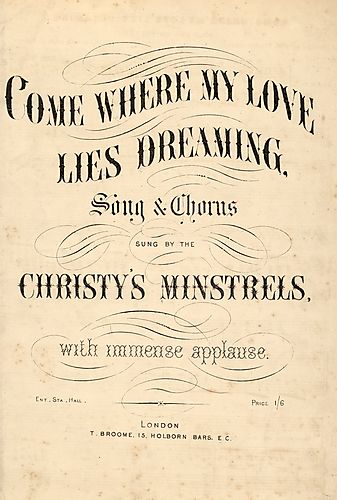 COME WHERE MY LOVE
LIES DREAMING,
Song & Chorus
SUNG BY THE
CHRISTY'S MINSTRELS,
with immense applause.
ENT. STA. HALL. PRICE 1/6
LONDON
T. BROOME, 15, HOLBORN BARS. E.C.